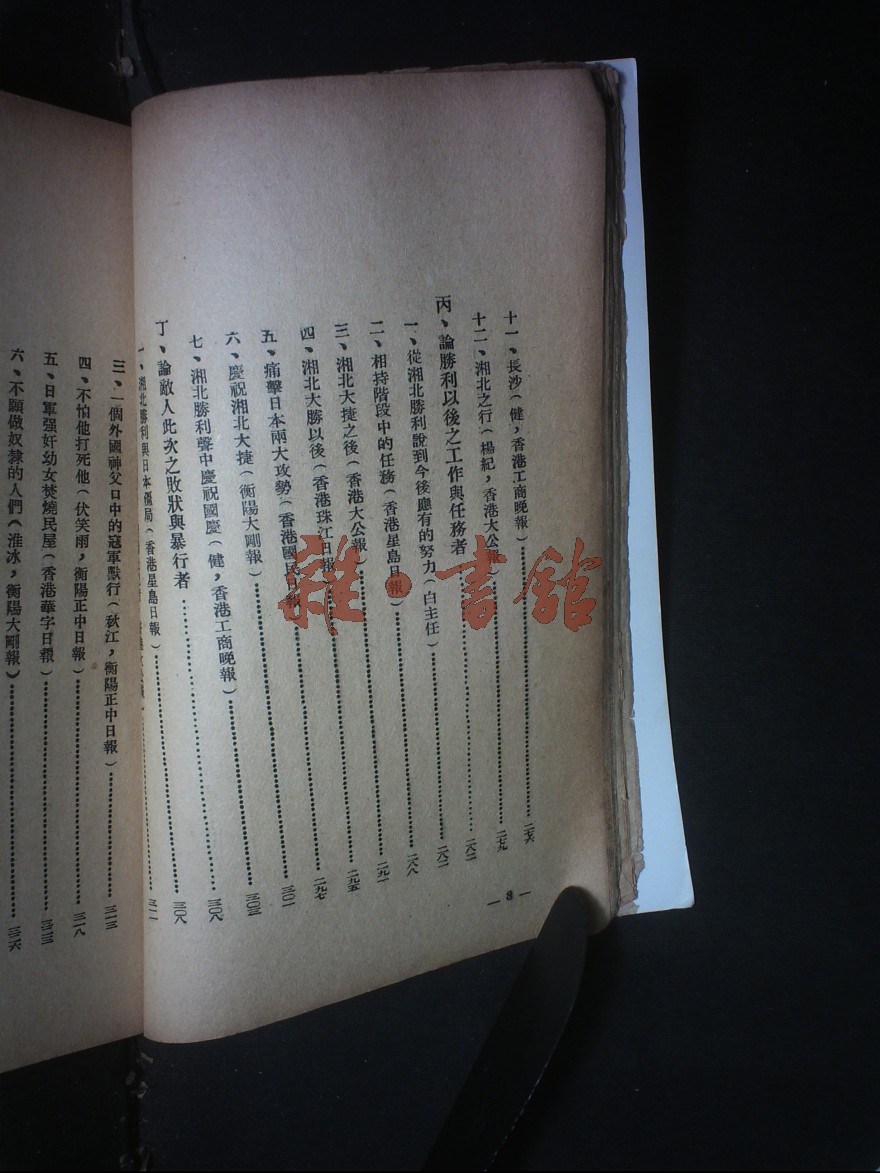 十一、長沙(健，香港工商晚報)……二七六
十二、湘北之行(楊紀，香港大公報)……二七九
丙、論勝利以後之工作與任務者……二八二
一、從湘北勝利說到今後應有的努力(白主任)……二八二
二、相持階段中的任務(香港星島日報)……二八八
三、湘北大捷之後(香港大公報)……二九一
四、湘北大勝以後(香港珠江日報)……二九五
五、痛擊日本兩大攻勢(香港國民日報)……二九七
六、慶祝湘北大捷(衡陽大剛報)……三〇一
七、湘北勝利聲中慶祝國慶(健，香港工商晚報)……三〇三
丁、論敵人此次之敗狀與暴行者……三〇八
一、湘北勝利與日本僵局(香港星島日報)……三〇八
三一一
三、一個外國神父口中的寇軍獸行(秋江，衡陽正中日報)……三一三
四、不怕他打死他(伏笑雨，衡陽正中日報)……三一八
五、日軍强奸幼女焚燒民屋(香港華字日報)……三二三
六、不願做奴隸的人們(淮冰，衡陽大剛報)……三二六
— 3 —
雜·書館